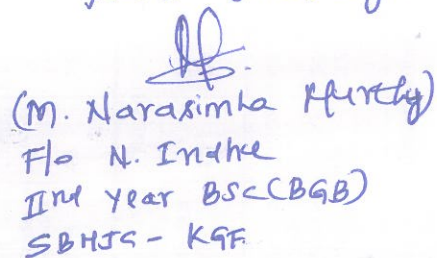 (M. Narasimha Murthy)
F/o N. Indhu
IInd year BSC (BGB)
SBHJG - KGF